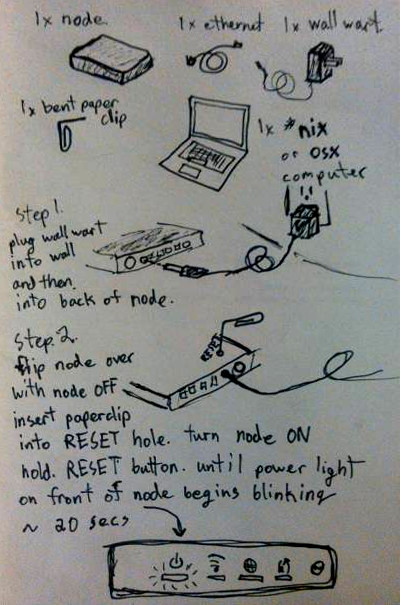 1x node
1x ethernet
1x wall wart
1x bent paper
clip
1x *nix
or osx
computer
step 1.
plug wall wart
into wall
and then
into back of node.
step 2.
flip node over
with node OFF
insert paperclip
into RESET hole. turn node ON
hold. RESET button. until power light
on front of node begins blinking
~ 20 secs